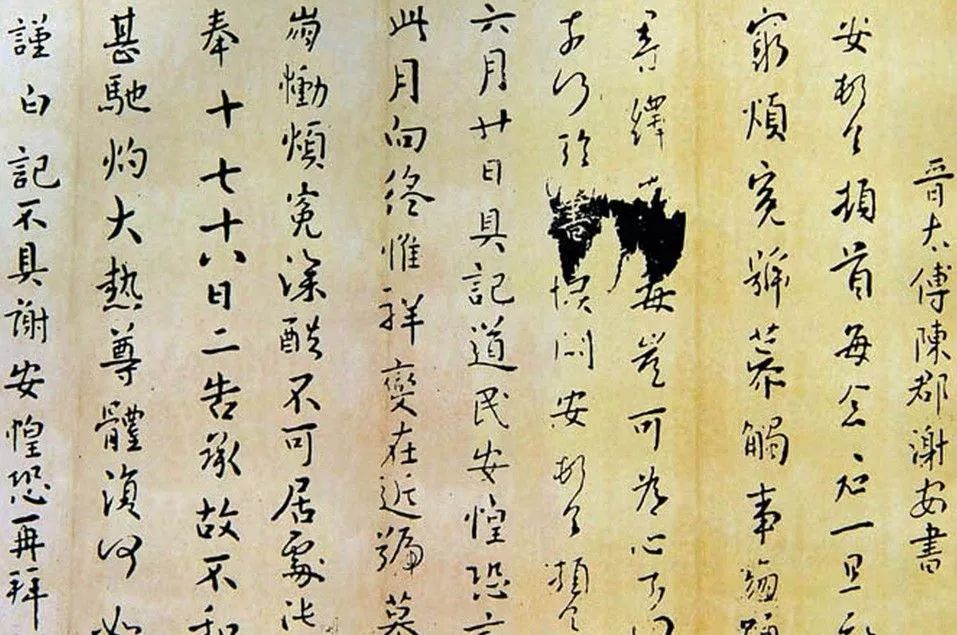 晉太傅陳郡謝安書
安頓首頓首每念君一旦
窮煩冤號慕觸事崩踊
尋繹荼毒豈可為心
奈何臨書安頓首頓首
六月廿日具記道民安惶恐言
此月向終惟祥變在近號慕
崩慟煩冤深酷不可居處比
奉十七十八日二告承故不和
甚馳灼大熱尊體復何如
謹白記不具謝安惶恐再拜